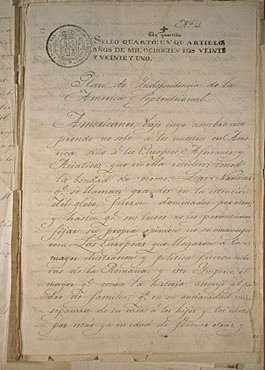 Nº 3
Un quartillo
SELLO QUARTO: UN QUARTILLO,
AÑOS DE MIL OCHOCIENTOS VEINTE
Y VEINTE Y UNO.
Plan de Independencia de la
America Septentrional.
Americanos, bajo cuyo nombre com
prendo no solo á los nacidos en Ame
rica, sino á los Europeos, Africanos y
Asiaticos, que en ella reciden: tened
la bondad de oirme. Las Naciones
qe. se llaman grandes en la extencion
del globo, fueron dominadas por otras,
y hasta qe. sus luces no les permitieron
fijar su propia opinion no se emanciparon
Las Europeas que llegaron á la
mayor ilustracion y politica, fueron escla
vas de la Romana; y este Imperio el
mayor qe. conoce la historia, asemejó al pa
dre de familia, qe. en su ancianidad mira
separarse de su casa á los hijos y los nietos
por estar ya en edad de formar otras,